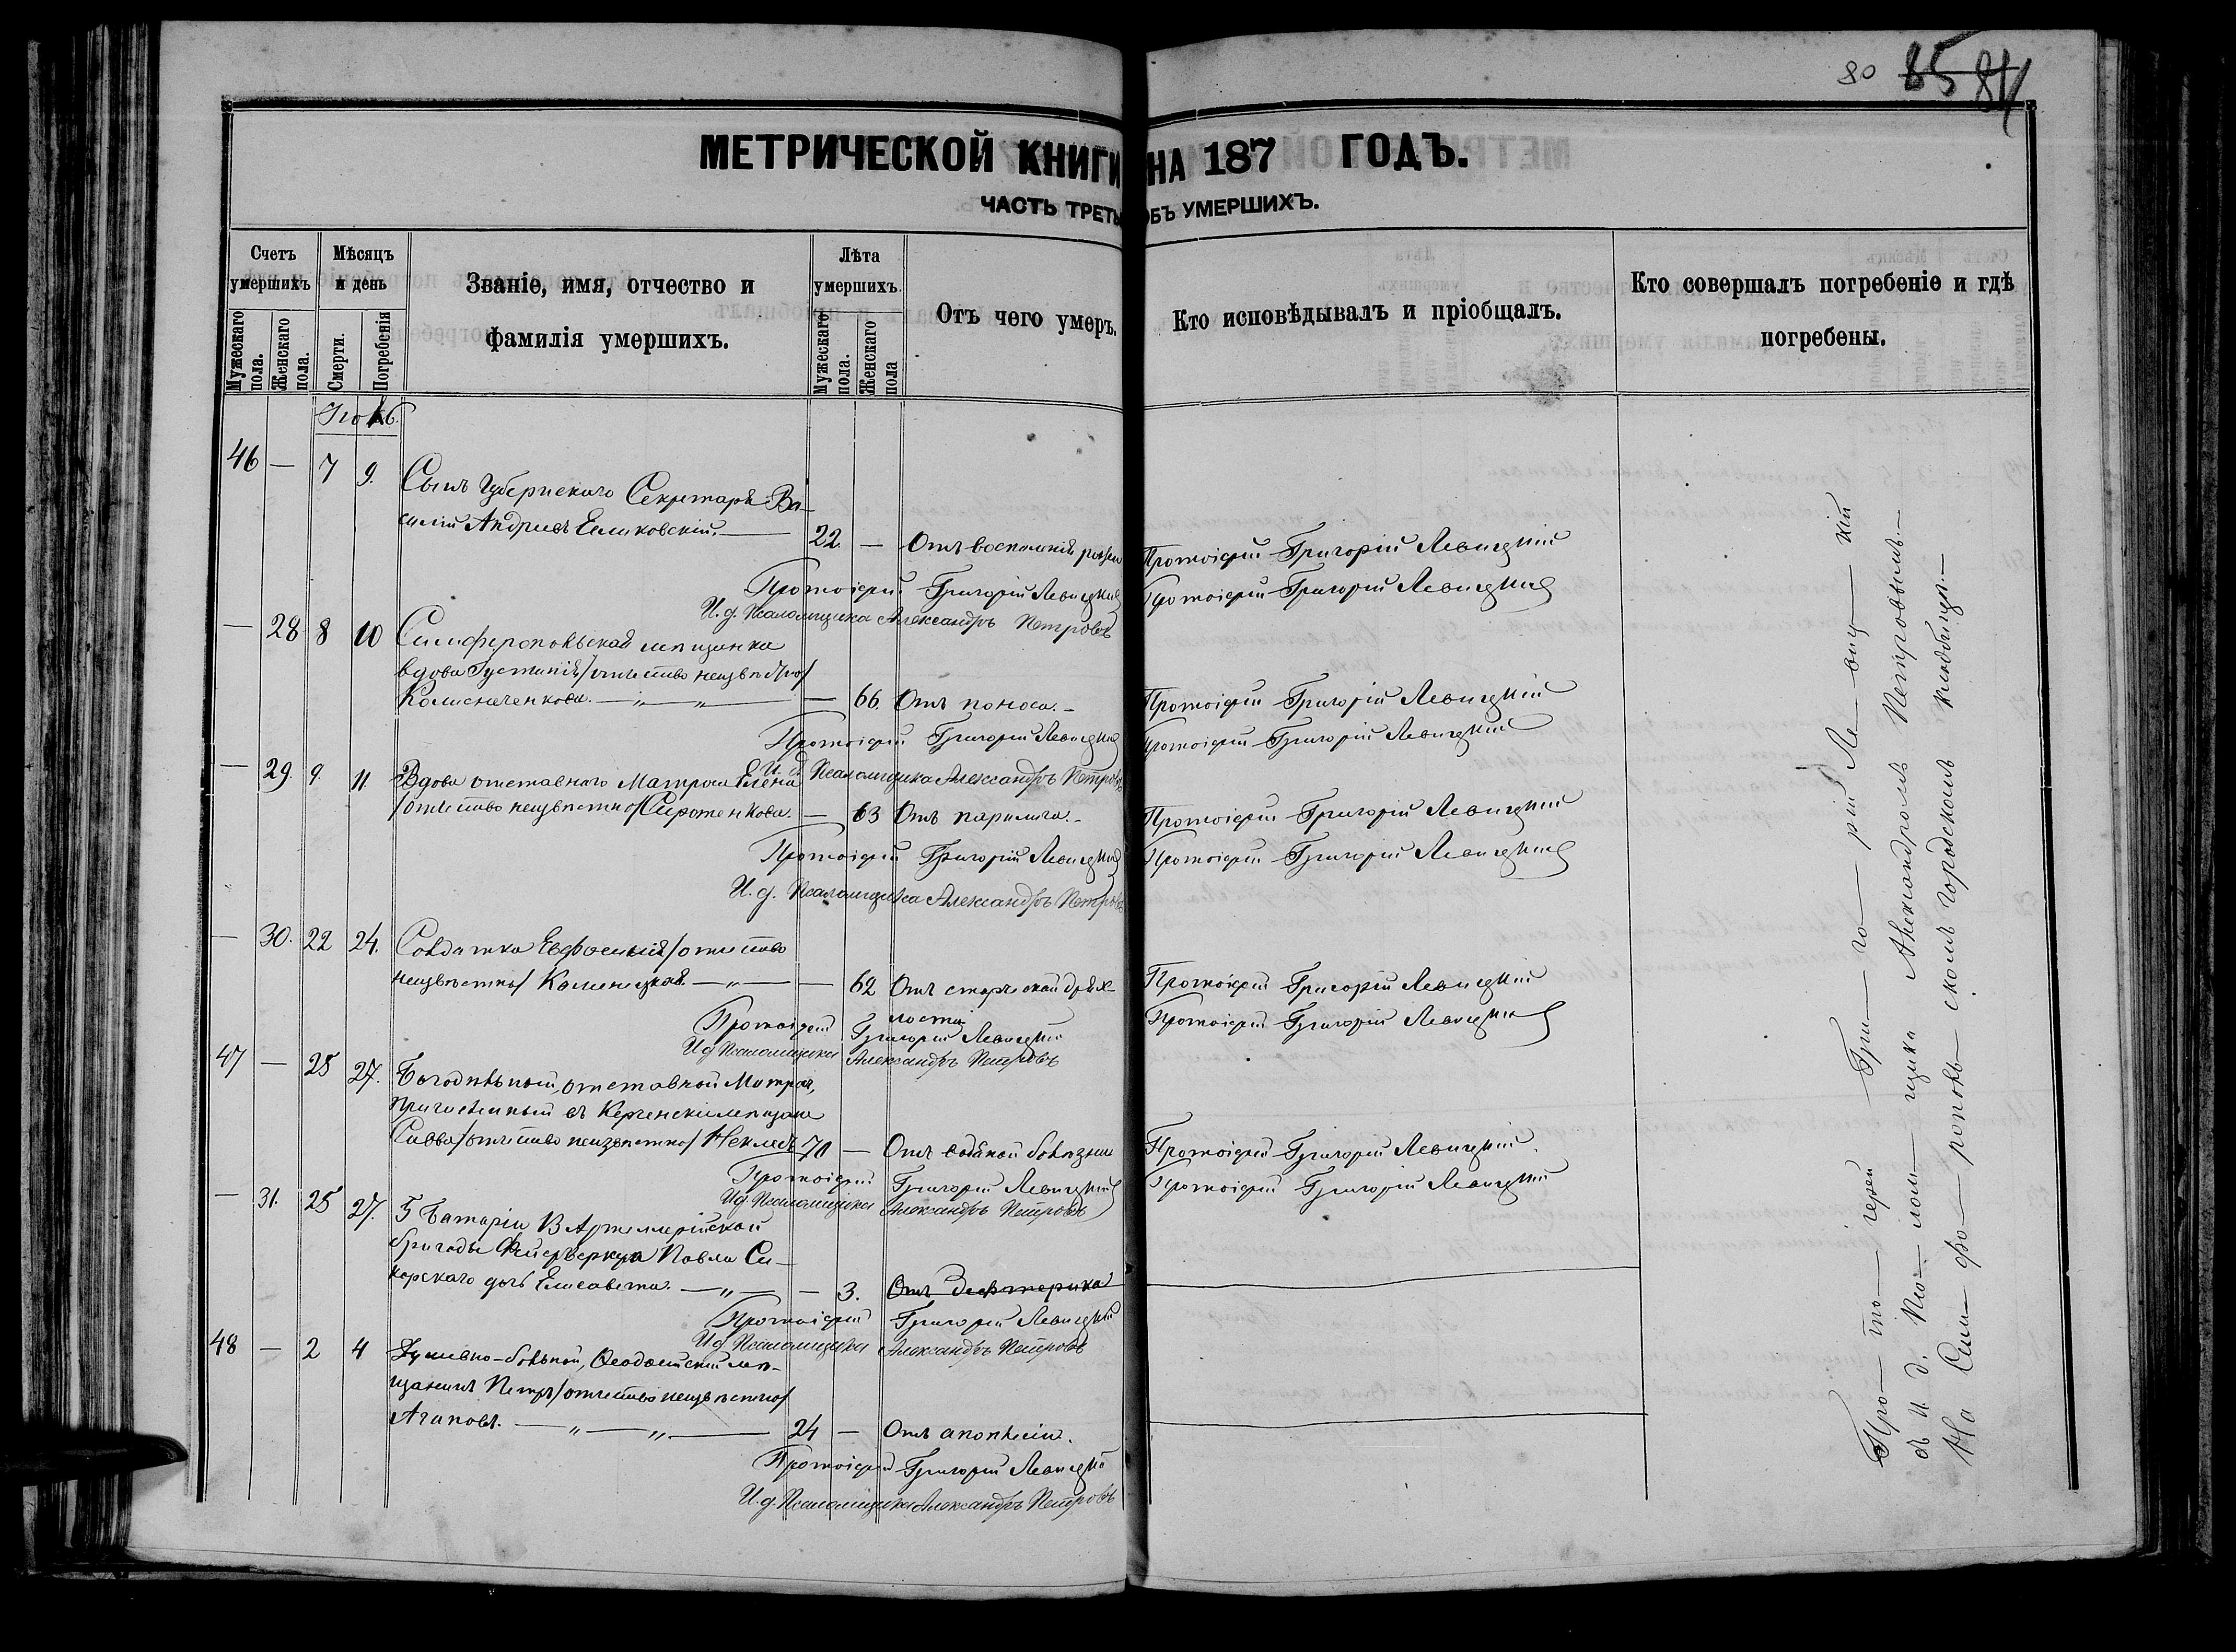 80 85 84
МЕТРИЧЕСКОЙ КНИГИ НА 187 ГОДЪ.
ЧАСТЬ ТРЕТЬ ОБЪ УМЕРШИХЪ.
Счетъ умершихъ
Мужескаго пола.
Женскаго пола.
Мѣсяцъ и день
Смерти.
Погребенія
Званіе, имя, отчество и фамилія умершихъ.
Лѣта умершихъ.
Мужескаго пола.
Женскаго пола
Отъ чего умеръ.
Кто исповѣдывалъ и пріобщалъ.
Кто совершалъ погребеніе и гдѣ погребены.
46 — 7 9. Сынъ Губернскаго Секретаря Ва-
силій Андреевъ 22. — Отъ воспаленія Протоіерей Григорій Левицкій
Протоіерей Григорій Левицкій Протоіерей Григорій Левицкій
И. д. Псаломщика Александръ Петровъ
— 28 8 10 Симферопольская мѣщанка
вдова Іустинія /отчество неизвѣстно/
— „ — „ — 66. Отъ поноса. – Протоіерей Григорій Левицкій
Протоіерей Григорій Левицкій Протоіерей Григорій Левицкій
И. д. Псаломщика Александръ Петровъ
— 29. 9. 11. Вдова отставнаго Матроса Елена
/отчество неизвѣстно/ Сиротенкова. — 63 Отъ паралича. – Протоіерей Григорій Левицкій
Протоіерей Григорій Левицкій Протоіерей Григорій Левицкій
И. д. Псаломщика Александръ Петровъ
— 30. 22 24. Солдатка Евфросинія /отчество
неизвѣстно/ Каменецкая. — „ — 62 Отъ старческой дрях- Протоіерей Григорій Левицкій
лости
Протоіерей Григорій Левицкій Протоіерей Григорій Левицкій
И д Псаломщика Александръ Петровъ
47 — 25 27. Богодѣльный, отставной Матросъ,
причисленный въ Керченскіе мѣщане
Савва /отчество неизвѣстно/ 70 — Отъ водяной болѣзни Протоіерей Григорій Левицкій.
Протоіерей Григорій Левицкій Протоіерей Григорій Левицкій
И д Псаломщика Александръ Петровъ
— 31. 25 27. 5 Батареи 13 Артиллерійской
бригады Фейерверкера Павла Си-
корскаго дочь Елисавета. — „ — 3. Отъ дифтерита
Протоіерей Григорій Левицкій
И д Псаломщика Александръ Петровъ
48 — 2 4 Душевно-больной, Ѳеодосійскій мѣ-
щанинъ Петръ /отчество неизвѣстно/
Агаповъ. — „ — „ — 24 — Отъ апоплексіи.
Протоіерей Григорій Левицкій
И. д. Псаломщика Александръ Петровъ
Про — то — іерей Гри — го — рій Ле — виц — кій
съ И. д. Пса — лом — щика Александромъ Петровымъ. —
На Сим — фе — рополь — скомъ городскомъ кладбищѣ. —